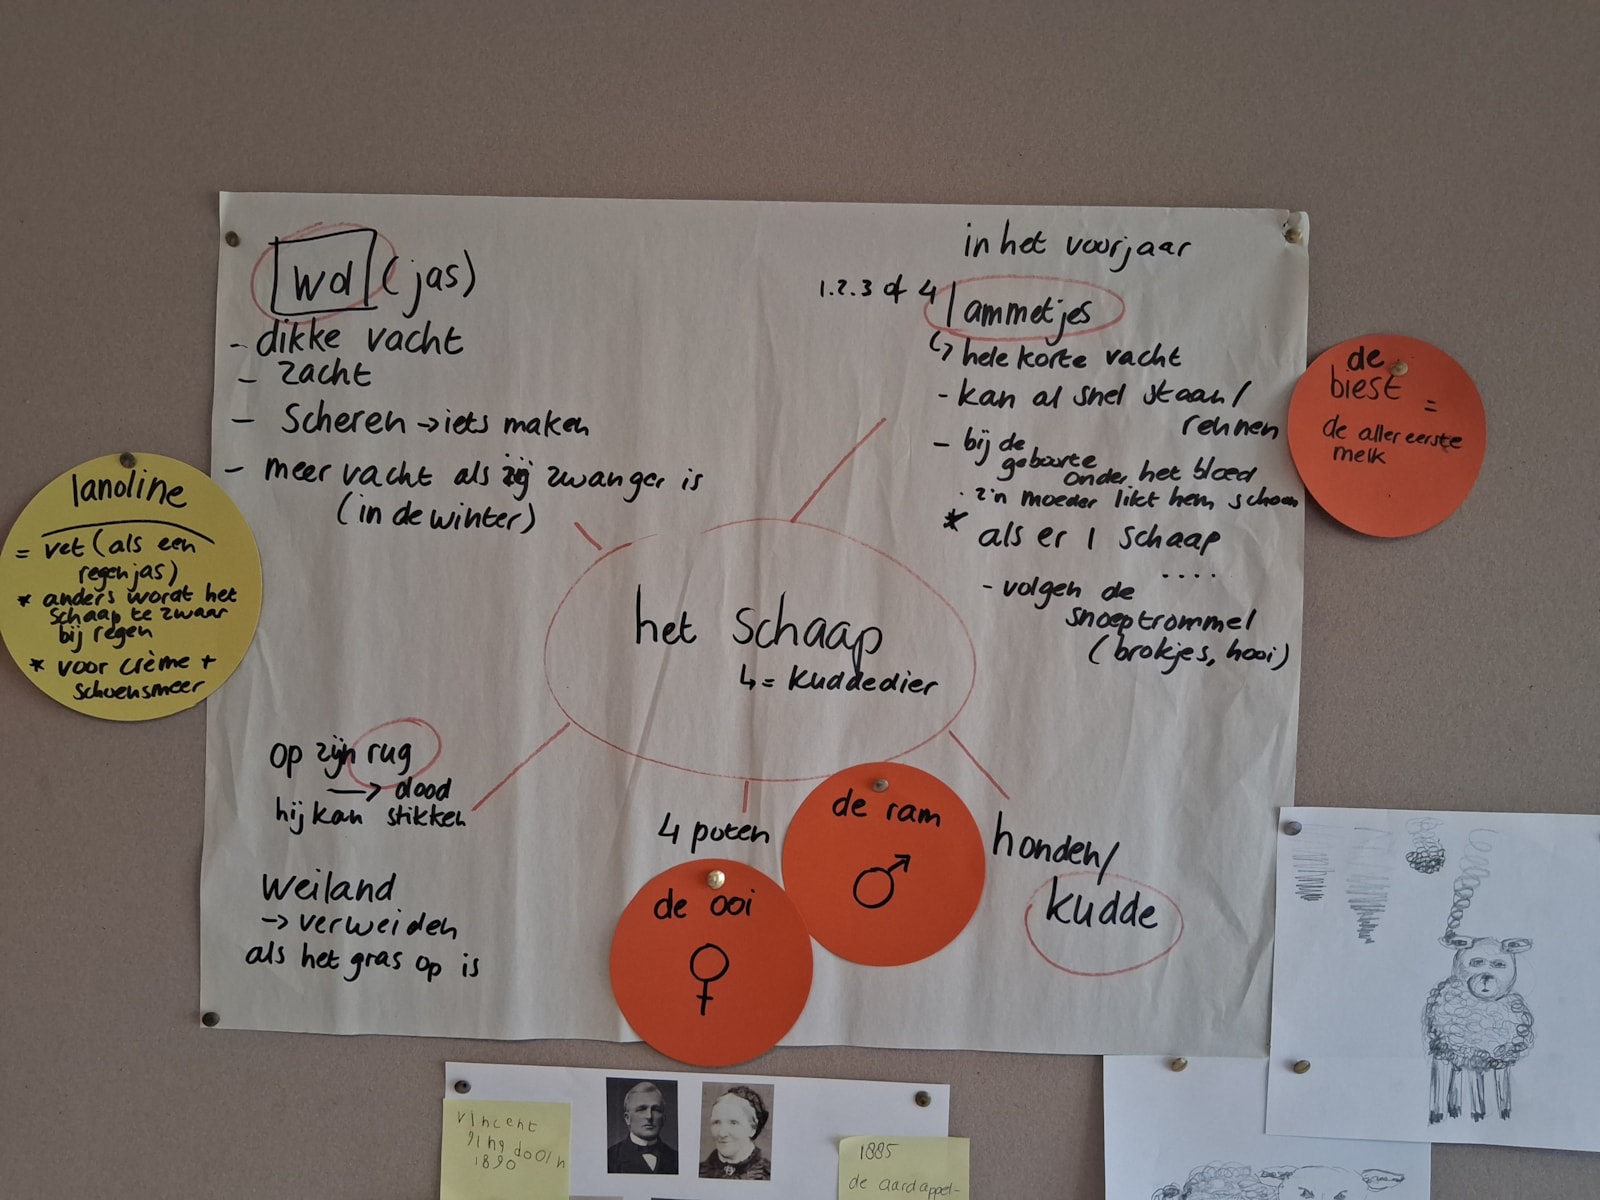 wol (jas)
- dikke vacht
- zacht
- Scheren → iets maken
- meer vacht als zij zwanger is
(in de winter)
in het voorjaar
1.2.3 of 4 lammetjes
↳ hele korte vacht
- kan al snel staan/
rennen
- bij de
geboorte
onder het bloed
· z'n moeder likt hem schoon
* als er 1 schaap
....
- volgen de
snoeptrommel
(brokjes, hooi)
de
biest =
de allereerste
melk
lanoline
= vet (als een
regenjas)
* anders wordt het
schaap te zwaar
bij regen
* voor crème +
schoensmeer
het schaap
↳ = kuddedier
op zijn rug
→ dood
hij kan stikken
weiland
→ verweiden
als het gras op is
4 poten
de ooi
♀
de ram
♂
honden/
kudde
vincent
ging dood in
1890
1885
de aardappel-